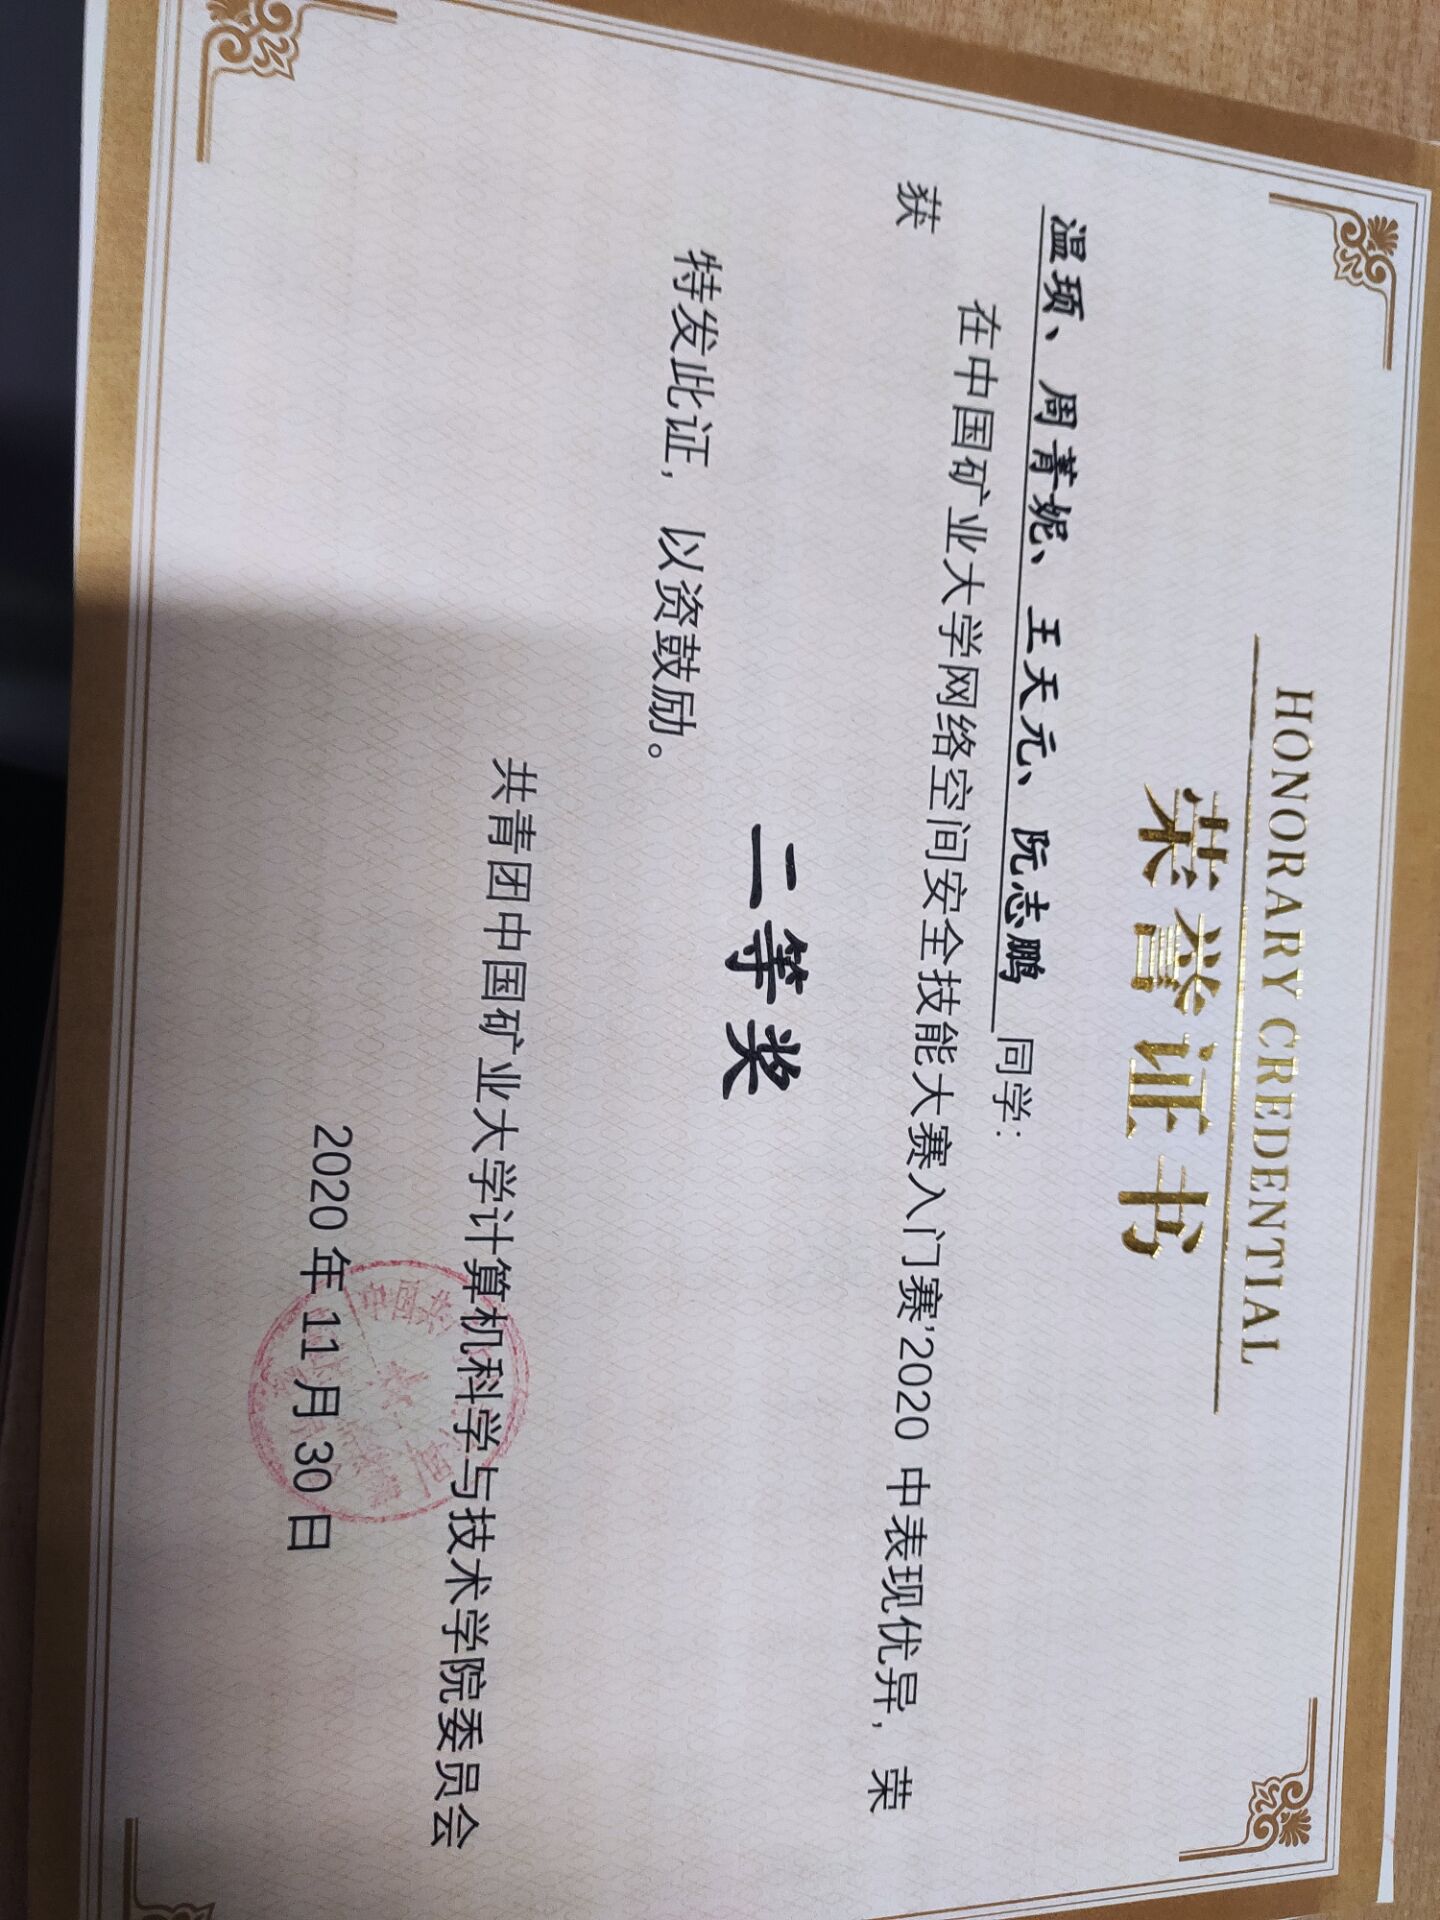 HONORARY CREDENTIAL
荣誉证书
温顼、周菁妮、王天元、阮志鹏 同学:
在中国矿业大学网络空间安全技能大赛入门赛’2020 中表现优异, 荣
获
二等奖
特发此证, 以资鼓励。
共青团中国矿业大学计算机科学与技术学院委员会
2020 年 11 月 30 日